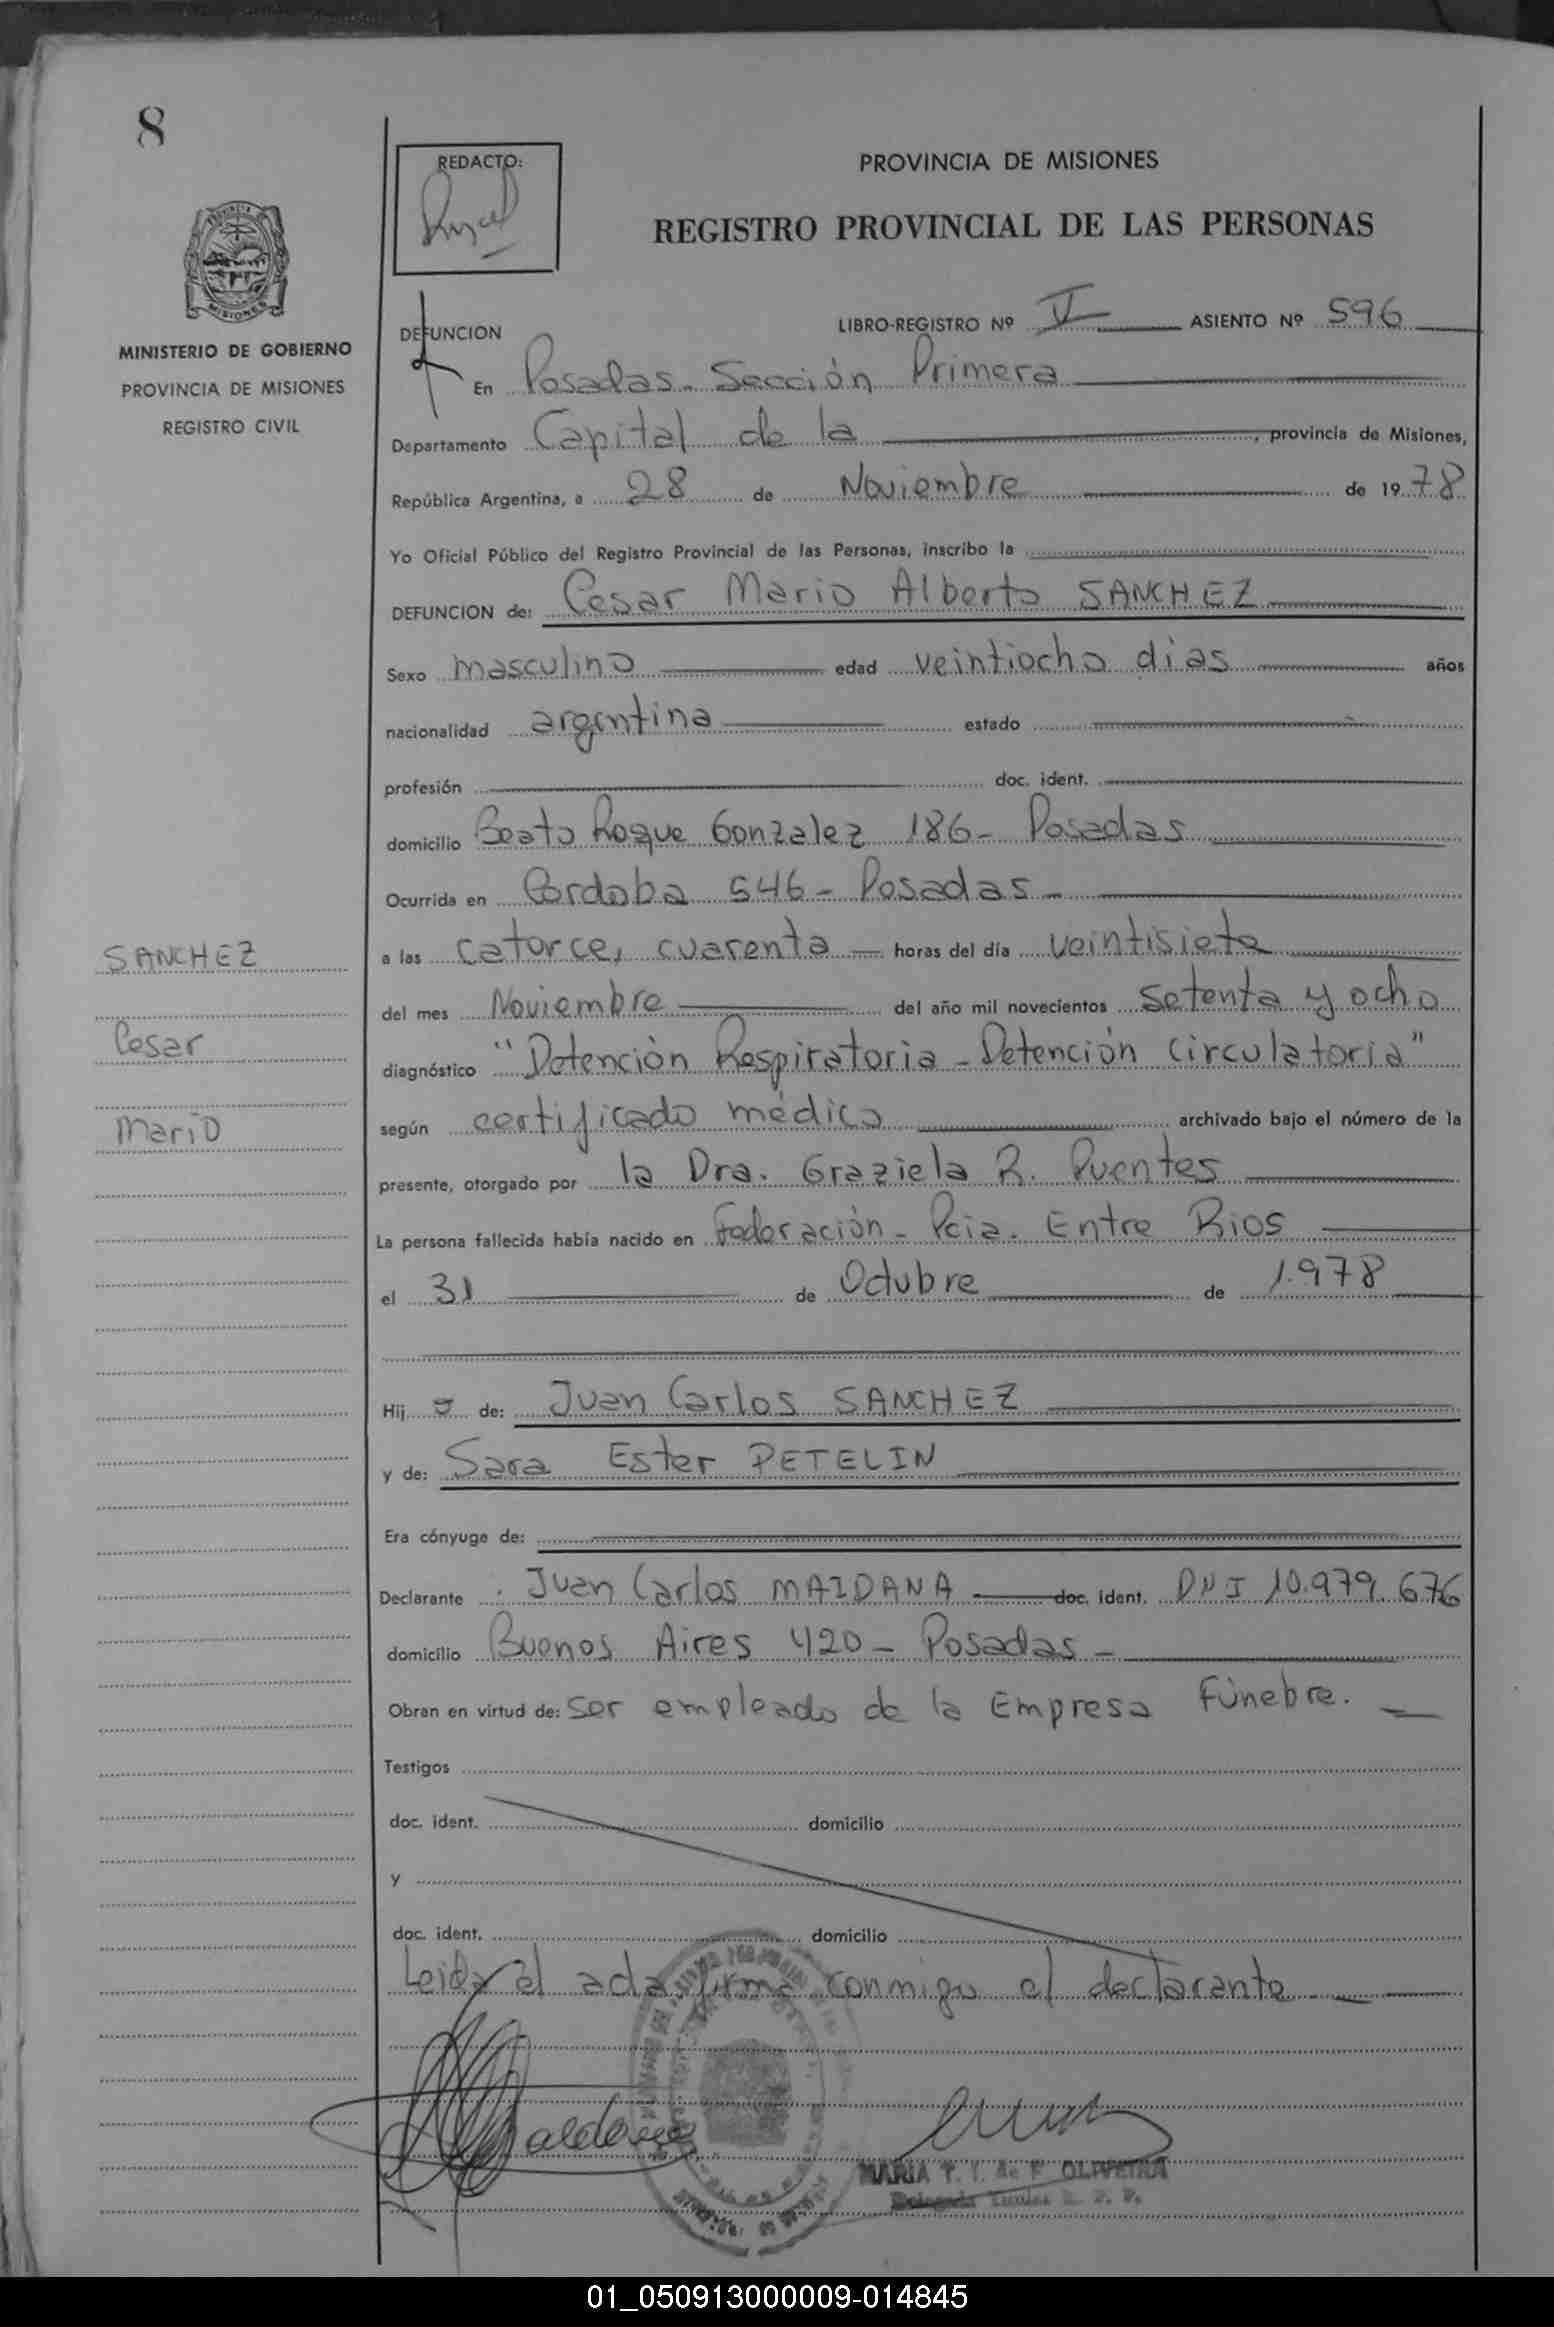 8
REDACTO:
PROVINCIA DE MISIONES
REGISTRO PROVINCIAL DE LAS PERSONAS
MISIONES
MINISTERIO DE GOBIERNO
PROVINCIA DE MISIONES
REGISTRO CIVIL
DEFUNCION
LIBRO-REGISTRO Nº V ASIENTO Nº 596
En Posadas - Sección Primera
Departamento Capital de la, provincia de Misiones,
República Argentina, a 28 de Noviembre de 1978
Yo Oficial Público del Registro Provincial de las Personas, inscribo la
DEFUNCION de: Cesar Mario Alberto SANCHEZ
Sexo masculino edad veintiocho días años
nacionalidad argentina estado
profesión doc. ident.
domicilio Beato Roque Gonzalez 186 - Posadas
Ocurrida en Cordoba 546 - Posadas -
a las catorce, cuarenta horas del día veintisiete
del mes Noviembre del año mil novecientos setenta y ocho
diagnóstico "Detención Respiratoria - Detención Circulatoria"
según certificado médico archivado bajo el número de la
presente, otorgado por la Dra. Graziela R. Puentes
La persona fallecida había nacido en Federación - Pcia. Entre Rios
el 31 de Octubre de 1.978
SANCHEZ
Cesar
Mario
Hij o de: Juan Carlos SANCHEZ
y de: Sara Ester PETELIN
Era cónyuge de:
Declarante Juan Carlos MAIDANA doc. ident. DNI 10.979.676
domicilio Buenos Aires 420 - Posadas -
Obran en virtud de: ser empleado de la Empresa Fúnebre.
Testigos
doc. ident. domicilio
y
doc. ident. domicilio
Leida el acta firma conmigo el declarante
MARIA T. I. de F. OLIVEIRA
01_050913000009-014845